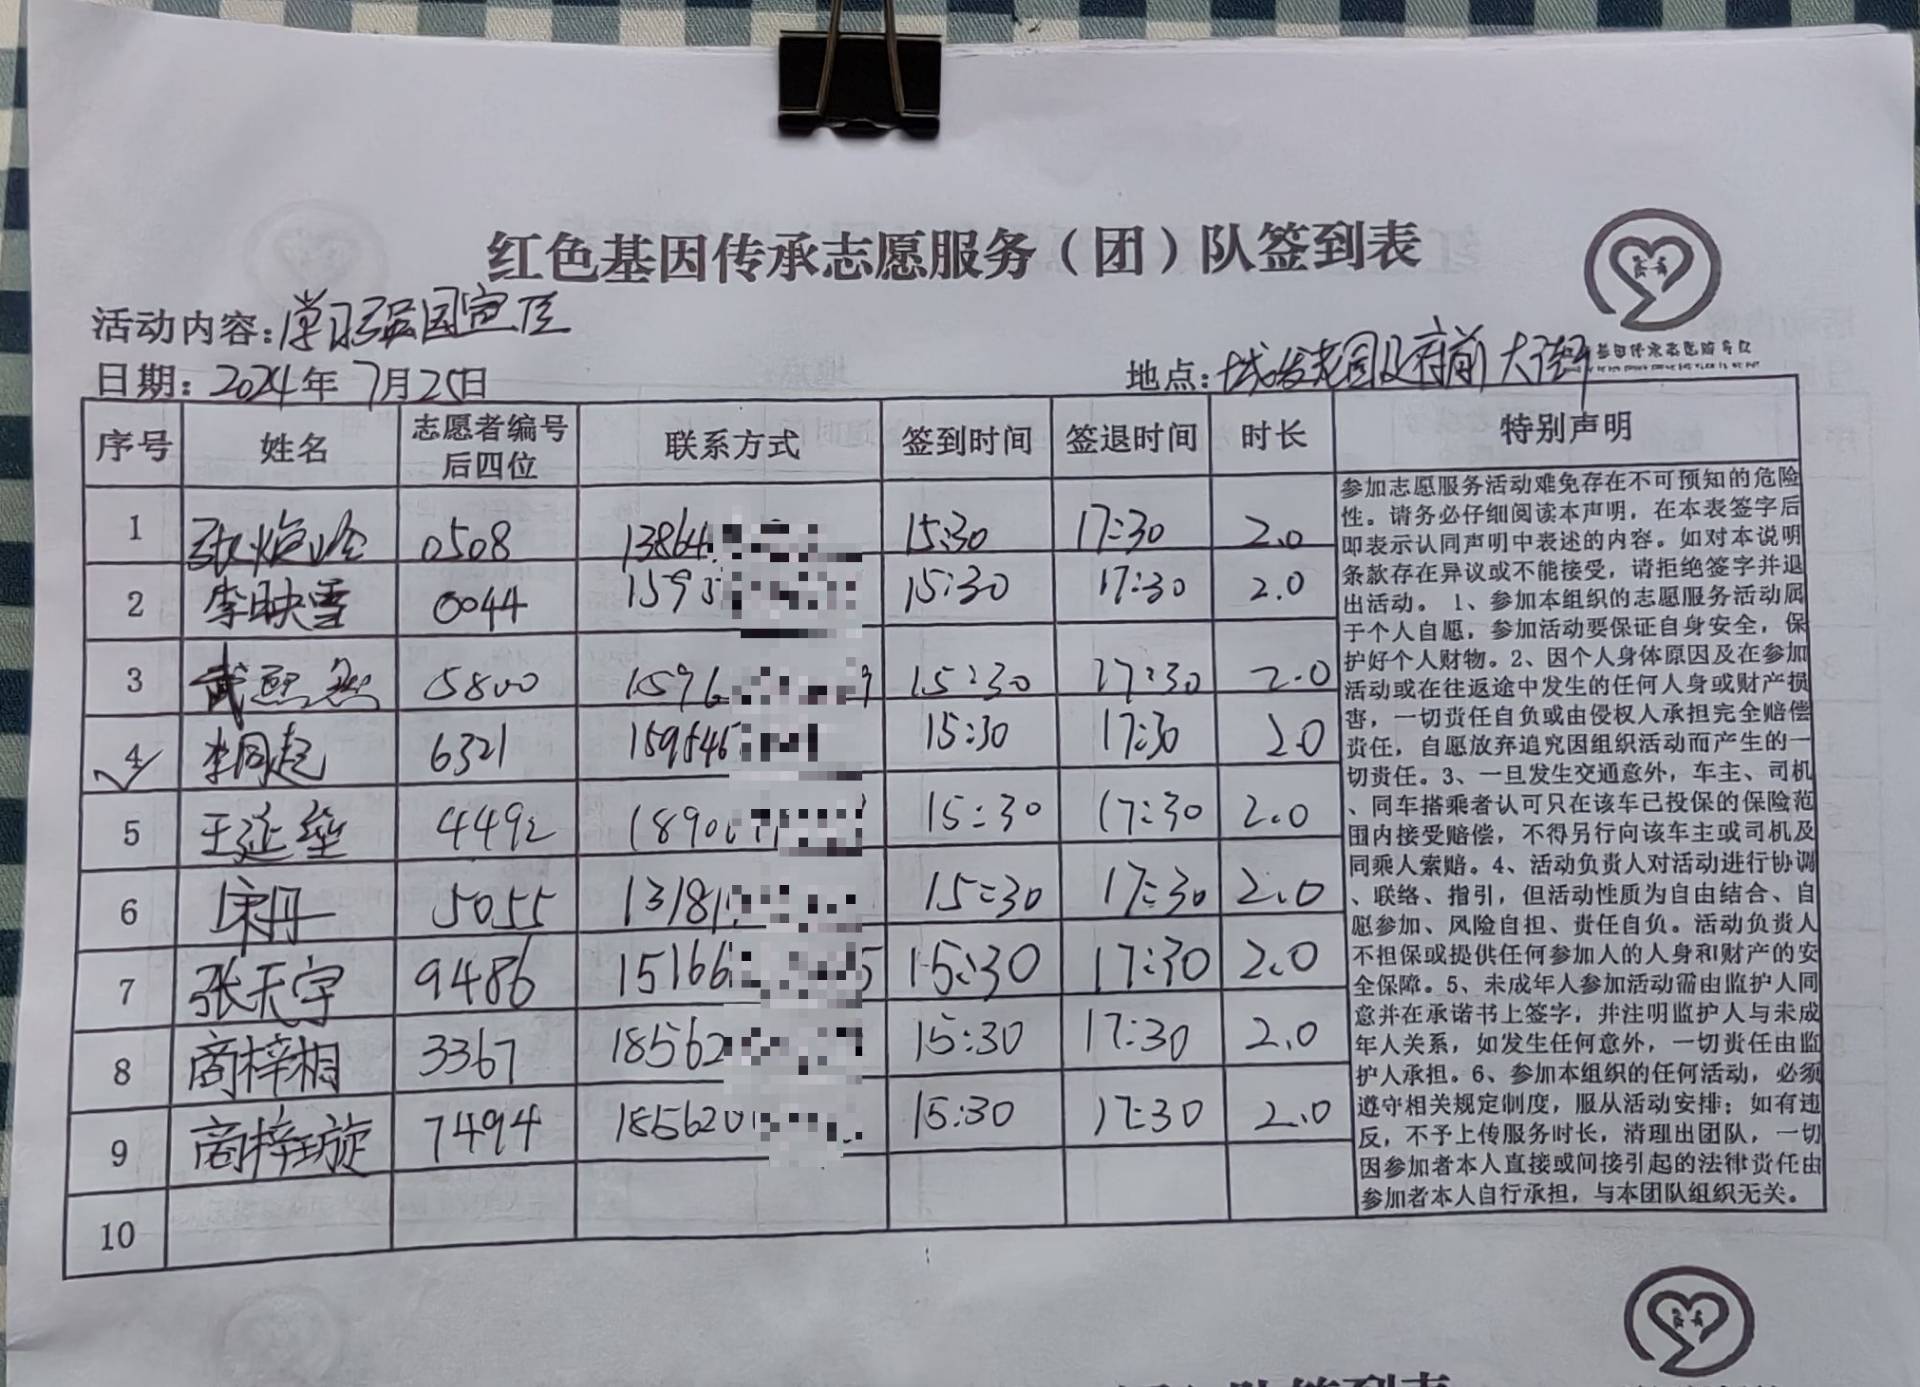 红色基因传承志愿服务（团）队签到表
活动内容：学习强国宣传
日期：2024年7月25日
地点：城发花园及府前大街
序号 姓名 志愿者编号后四位 联系方式 签到时间 签退时间 时长 特别声明
1 0508 13864 15:30 17:30 2.0
2 李映雪 0044 1595 15:30 17:30 2.0
3 武熙然 5800 1596 9 15:30 17:30 2.0
4 李同起 6321 159546 15:30 17:30 2.0
5 4492 1890 15:30 17:30 2.0
6 宋丹 5055 1318 15:30 17:30 2.0
7 张天宇 9486 15166 5 15:30 17:30 2.0
8 商梓桐 3367 18562 15:30 17:30 2.0
9 商梓璇 7494 1856201 15:30 17:30 2.0
10
参加志愿服务活动难免存在不可预知的危险
性。请务必仔细阅读本声明，在本表签字后
即表示认同声明中表述的内容。如对本说明
条款存在异议或不能接受，请拒绝签字并退
出活动。 1、参加本组织的志愿服务活动属
于个人自愿，参加活动要保证自身安全，保
护好个人财物。2、因个人身体原因及在参加
活动或在往返途中发生的任何人身或财产损
害，一切责任自负或由侵权人承担完全赔偿
责任，自愿放弃追究因组织活动而产生的一
切责任。3、一旦发生交通意外，车主、司机
、同车搭乘者认可只在该车已投保的保险范
围内接受赔偿，不得另行向该车主或司机及
同乘人索赔。4、活动负责人对活动进行协调
、联络、指引，但活动性质为自由结合、自
愿参加、风险自担、责任自负。活动负责人
不担保或提供任何参加人的人身和财产的安
全保障。5、未成年人参加活动需由监护人同
意并在承诺书上签字，并注明监护人与未成
年人关系，如发生任何意外，一切责任由监
护人承担。6、参加本组织的任何活动，必须
遵守相关规定制度，服从活动安排；如有违
反，不予上传服务时长，清理出团队，一切
因参加者本人直接或间接引起的法律责任由
参加者本人自行承担，与本团队组织无关。